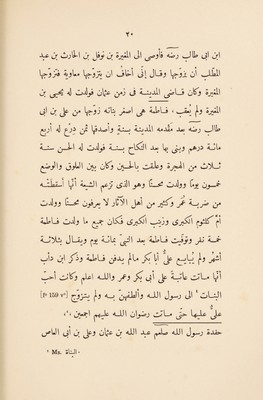 ٢٠
ابن ابى طالب رضّه فأوصى الى المغيرة بن نوفل بن الحارث بن عبد
المطّلب أن يزوّجها وقال إنّى أخاف ان يتزوّجها معاوية فتزوّجها
المغيرة وكان قاضى المدينة فى زمن عثمان فولدت له يحيى بن
المغيرة ولم يُعقب، فاطمة هى اصغر بناته زوّجها من على بن ابى
طالب رضّه بعد مقدمه المدينة بسنة وأصدقها ثمن دِرْع له أربع
مائة درهم وبنى بها بعد النكاح بسنة فولدت له الحسن سنة
ثلاث من الهجرة وعلقت بالحسين وكان بين العلوق والوضع
خمسون يومًا وولدت محسنًا وهو الذى تزعم الشيعة أنّها أسقطتْه
من ضربة عُمر وكثير من أهل الآثار لا يعرفون محسنًا وولدت
أمّ كلثوم الكبرى وزينب الكبرى فكان جميع ما ولدت فاطمة
خمسة نفر وتوفّيت فاطمة بعد النبىّ بمائة يوم ويقال بثلاثة
أشهُر ولم يُبايع علىٌّ أبا بكر مالم يدفن فاطمة وذكر ابن دأب
أنّها ماتت عاتبة على أبى بكر وعمر واللـه اعلم وكانت أحبّ
البنات ¹ الى رسول اللـه وألطفهنّ به ولم يتزوّج [fº 159 vº]
علىٌّ عليها حتّى ماتت رضوان اللـه عليهم اجمعين ،'،
حفدة رسول اللـه صلعم عبد اللـه بن عثمان وعلى بن أبى العاص
¹ Ms. البناة.